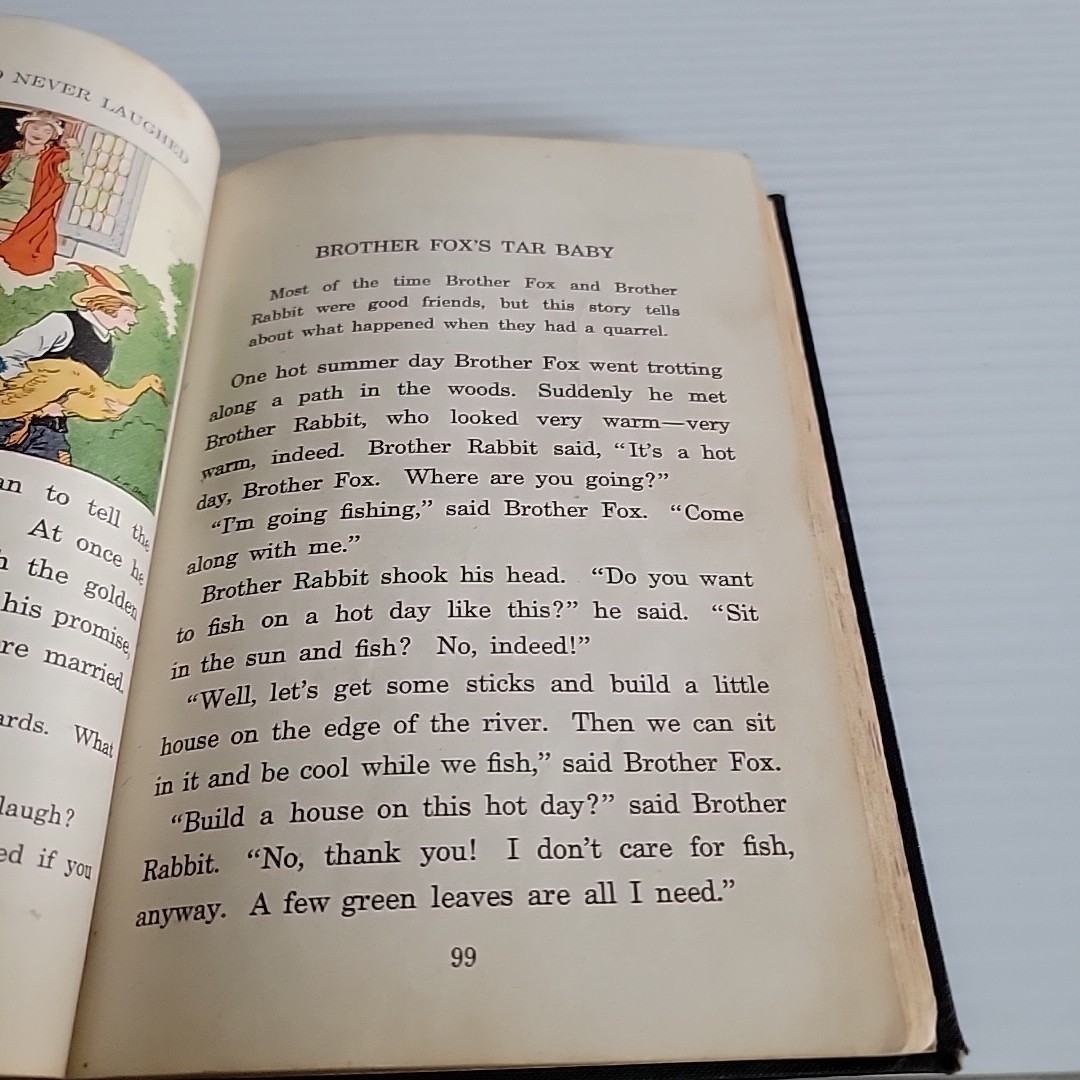 NEVER LAUGHED
an to tell the
At once he
the golden
his promise,
re married.
ards. What
laugh?
ed if you
BROTHER FOX'S TAR BABY
Most of the time Brother Fox and Brother
Rabbit were good friends, but this story tells
about what happened when they had a quarrel.
One hot summer day Brother Fox went trotting
along a path in the woods. Suddenly he met
Brother Rabbit, who looked very warm—very
warm, indeed. Brother Rabbit said, “It's a hot
day, Brother Fox. Where are you going?”
“I'm going fishing,” said Brother Fox. “Come
along with me.”
Brother Rabbit shook his head. “Do you want
to fish on a hot day like this?” he said. “Sit
in the sun and fish? No, indeed!”
“Well, let's get some sticks and build a little
house on the edge of the river. Then we can sit
in it and be cool while we fish,” said Brother Fox.
“Build a house on this hot day?” said Brother
Rabbit. “No, thank you! I don't care for fish,
anyway. A few green leaves are all I need.”
99